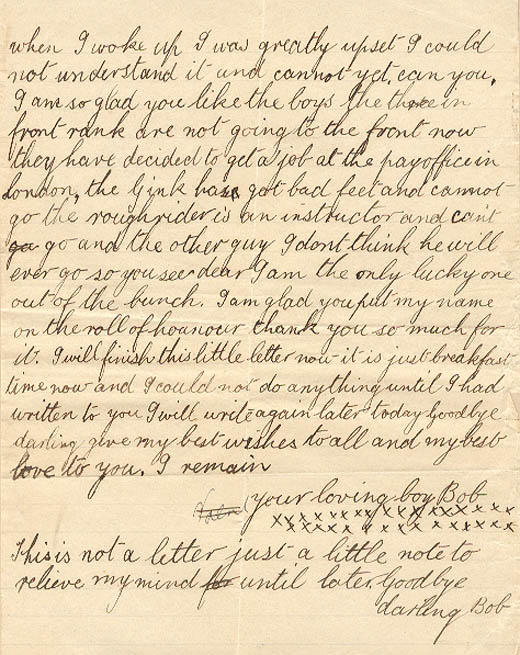 when I woke up I was greatly upset I could
not understand it and cannot yet, can you,
I am so glad you like the boys the three in
front rank are not going to the front now
they have decided to get a job at the payoffice in
London, the Gink has got bad feet and cannot
go the roughrider is an instructor and can't
go go and the other guy I dont think he will
ever go so you see dear I am the only lucky one
out of the bunch. I am glad you put my name
on the roll of hoanour thank you so much for
it. I will finish this little letter now it is just breakfast
time now and I could not do anything until I had
written to you I will write again later today Goodbye
darling give my best wishes to all and my best
love to you. I remain
your loving boy Bob
x x x x x x x x x x x x x
x x x x x x x x x x x x
This is not a letter just a little note to
relieve my mind for until later. Goodbye
darling Bob